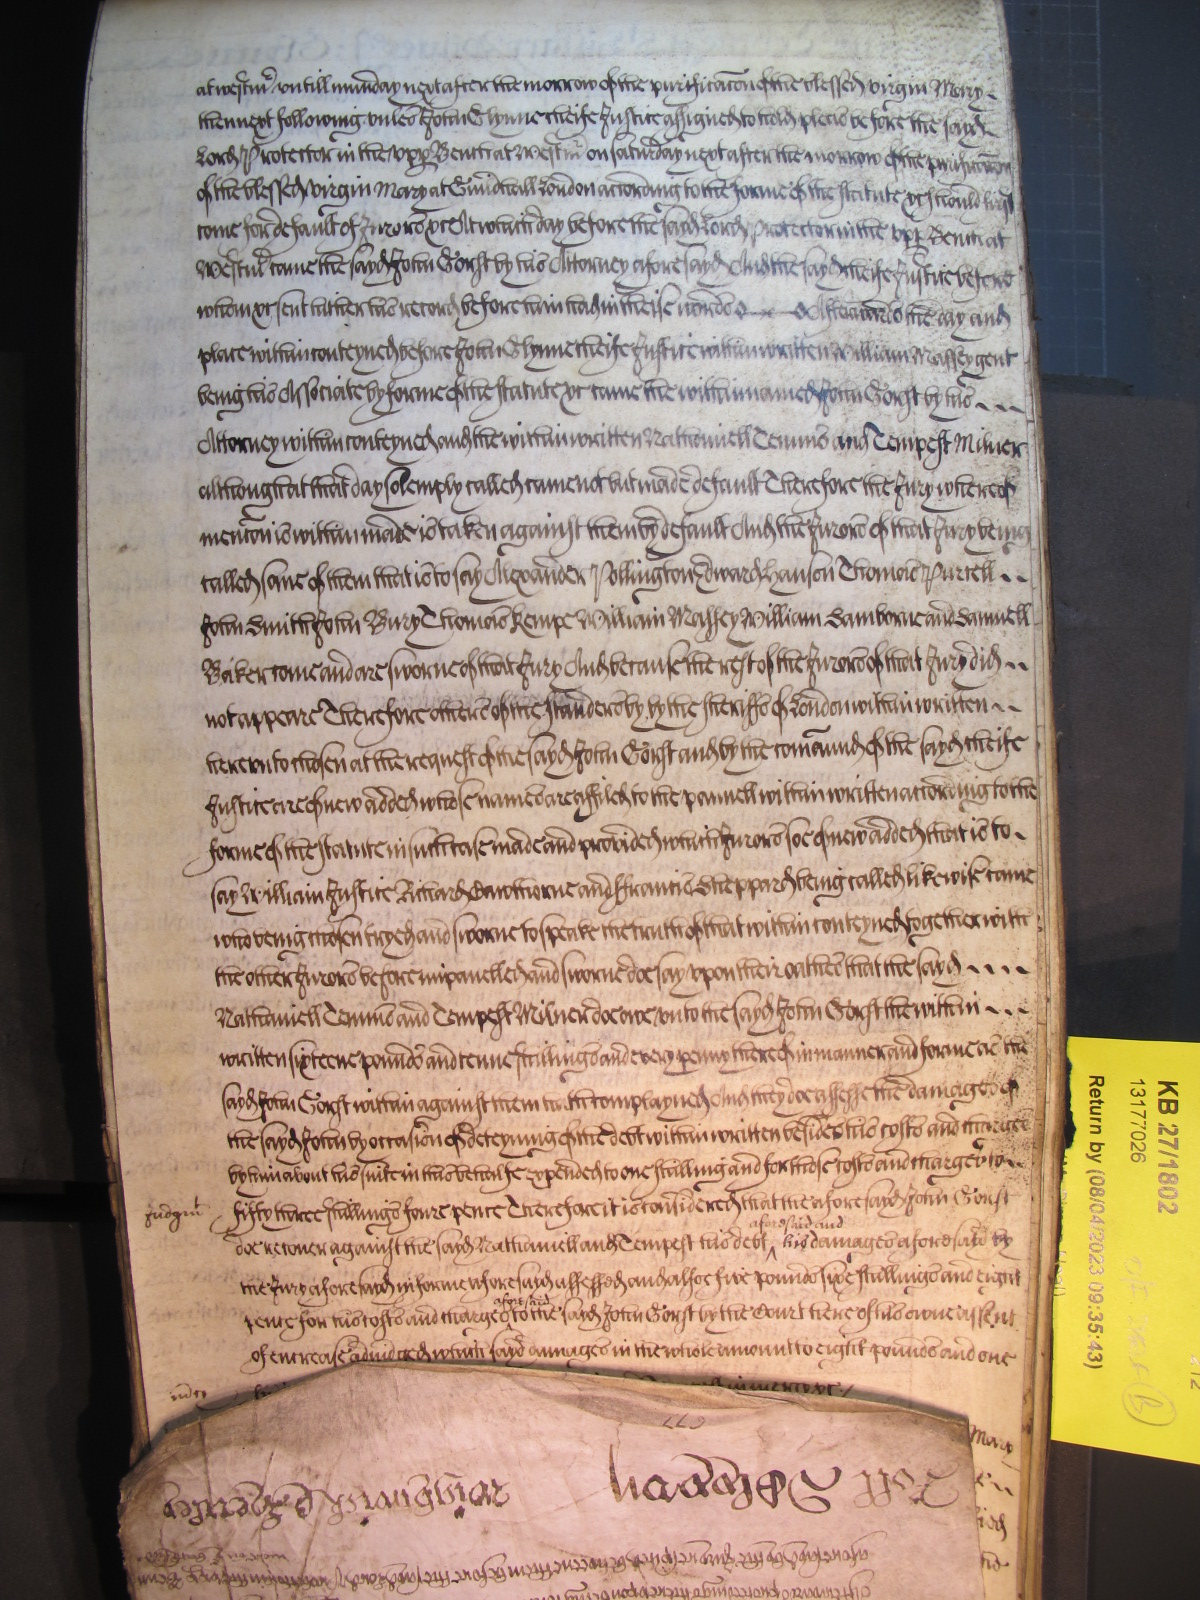 at westm̃ untill munday next after the morrow of the purificac̃on of the blessed virgin Mary
then next following unles John Glynne cheife Justice assigned to hold pleas before the sayd
Lord Protector in the upp Bench at Westm̃ on saturday next after the morrow of the purificac̃on
of the blessed virgin Mary at Guildhall London according to the forme of the statute &c should first
come for default of Jurors &c At which day before the sayd Lord Protector in the upp Bench at
Westm̃ came the sayd John Gorst by his Attorney aforesayd And the sayd cheife Justice before
whom &c sent hither his record before him had in these words Afterwards the day and
place within conteyned before John Glynne cheife Justice within written William Massey gent
being his Associate by forme of the statute &c came the within named John Gorst by his
Attorney within conteyned and the within written Nathaniell Temms and Tempest Milner
although at that day solemply called came not but made default Therefore the Jury whereof
menc̃on is within made is taken against them by default And the Jurors of that Jury being
called some of them that is to say Alexander Pollington Edward Hanson Thomas Purcell
John Smith John Bury Thomas Kempe William Massey William Samborne and Samuell
Baker come and are sworne of that Jury And because the rest of the Jurors of that Jury did
not appeare Therefore others of the standersby by the sheriffs of London within written
hereunto chosen at the request of the sayd John Gorst and by the com̃aund of the sayd cheife
Justice are of new added whose names are affiled to the pannell within written according to the
forme of the statute in such case made and provided which Jurors soe of new added that is to
say William Justice Richard Hawthorne and ffrancis Sheppard being called likewise came
who being chosen tryed and sworne to speake the truth of that within conteyned together with
the other Jurors before impanelled and sworne doe say upon their oathes that the sayd
Nathaniell Temms and Tempest Milner doe owe unto the sayd John Gorst the within
written sixteene pounds and tenne shillings and every penny thereof in manner and forme as the
sayd John Gorst within against them hath complayned And they doe assesse the damages of
the sayd John by occasion of deteyning of the debt within written besides his costs and charges
by him about his suite in his behalfe expended to one shilling and for those costs and charges to
Judgm̃t fifty three shillings foure pence Therefore it is considered that the aforesayd John Gorst
doe recover against the sayd Nathaniell and Tempest his debt aforesaid and his damages aforesaid by
the Jury aforesayd in forme aforesaid assessed and alsoe five pounds sixe shillings and eight
pence for his costs and charges aforesaid to the sayd John Gorst by the Court here of his owne assent
of encrease adiudged which sayd damages in the whole amount to eight pounds and one
in mercy &c
KB 27/1802
13177026
Return by (08/04/2023 09:35:43)